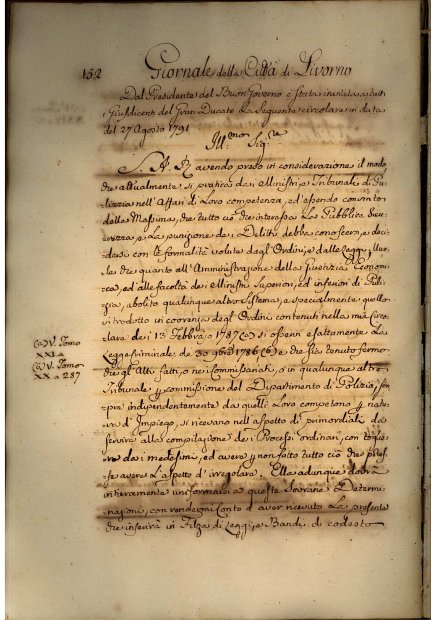 152 Giornale della Città di Livorno
Dal Presidente del Buon Governo è stata inviata a tutti
i Giusdicenti del Gran-Ducato La Seguente circolare in data
del 27 Agosto 1791
Ill.mo Sig.re
S. A. R. avendo preso in considerazione il modo
che attualmente si pratica dai Ministri e Tribunali di Pu-
lizzia nell'Affari di Loro competenza, ed essendo convinto
della Massima, che tutto ciò che interessa La Pubblica Sicu-
rezza, e La punizione dei Delitti debba conoscersi, e deci-
dersi con Le formalità volute dagl'Ordini, e dalle Leggi, Vuo-
le che quanto all'Amministrazione della Giustizia Economi-
ca, ed alle facoltà dei Ministri Superiori, ed inferiori di Puli-
zia, abolito qualunque altro Sistema, e specialmente quello
introdotto in coerenza degl'Ordini contenuti nella mia Circo-
lare dei 13 Febbro 1787 (a) si osservi esattamente La
Legge Criminale de 30 9bre 1786 (b) e che sia tenuto fermo
che gl'Atti fatti, o nei Commissariati, o in qualunque altro
Tribunale per commissione del Dipartimento di Polizia, sem-
pre independentemente da quelli Loro competono per natura
d'Impiego, si ricevano nell'aspetto di primordiali da
servire alla compilazione dei Processi ordinari, con togliere
da i medesimi ed avere per non fatto tutto ciò che potes-
se avere L'aspetto d'irregolare. Ella adunque dovrà
intieramente uniformarsi a queste Sovrane Determi-
nazioni, con rendermi Conto d'aver ricevuto La presente
che inserirà in Filza di Leggi, e Bandi di codesto
(a) V. Tomo
XXI a
(b) V. Tomo
XX a 287